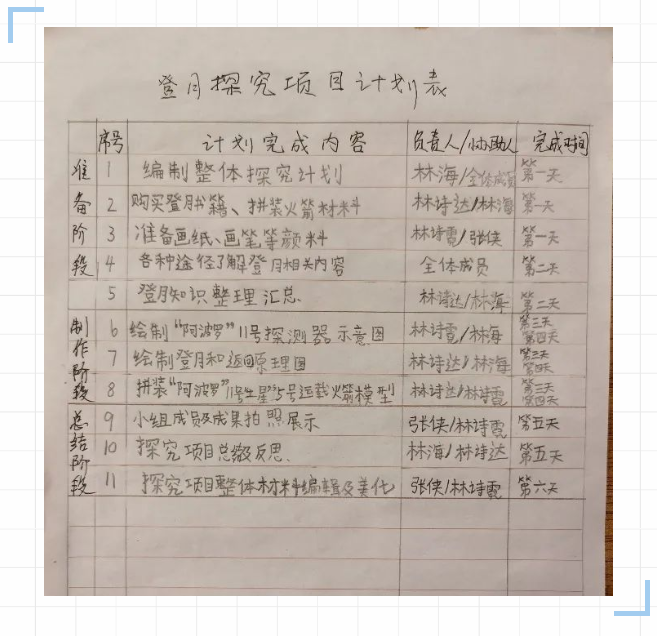 登月探究项目计划表
序号 计划完成内容 负责人/协助人 完成时间
准备阶段
1 编制整体探究计划 林海/全体成员 第一天
2 购买登月书籍、拼装火箭材料 林诗达/林海 第一天
3 准备画纸、画笔等颜料 林诗霓/张侠 第一天
4 各种途径了解登月相关内容 全体成员 第二天
5 登月知识整理汇总 林诗达/林海 第二天
制作阶段
6 绘制“阿波罗”11号探测器示意图 林诗霓/林海 第三天 第四天
7 绘制登月和返回原理图 林诗达/林海 第三天 第四天
8 拼装“阿波罗”11号土星5号运载火箭模型 林诗达/林诗霓 第三天 第四天
总结阶段
9 小组成员及成果拍照展示 张侠/林诗霓 第五天
10 探究项目总缀反思. 林海/林诗达 第五天
11 探究项目整体材料编辑及美化 张侠/林诗霓 第六天